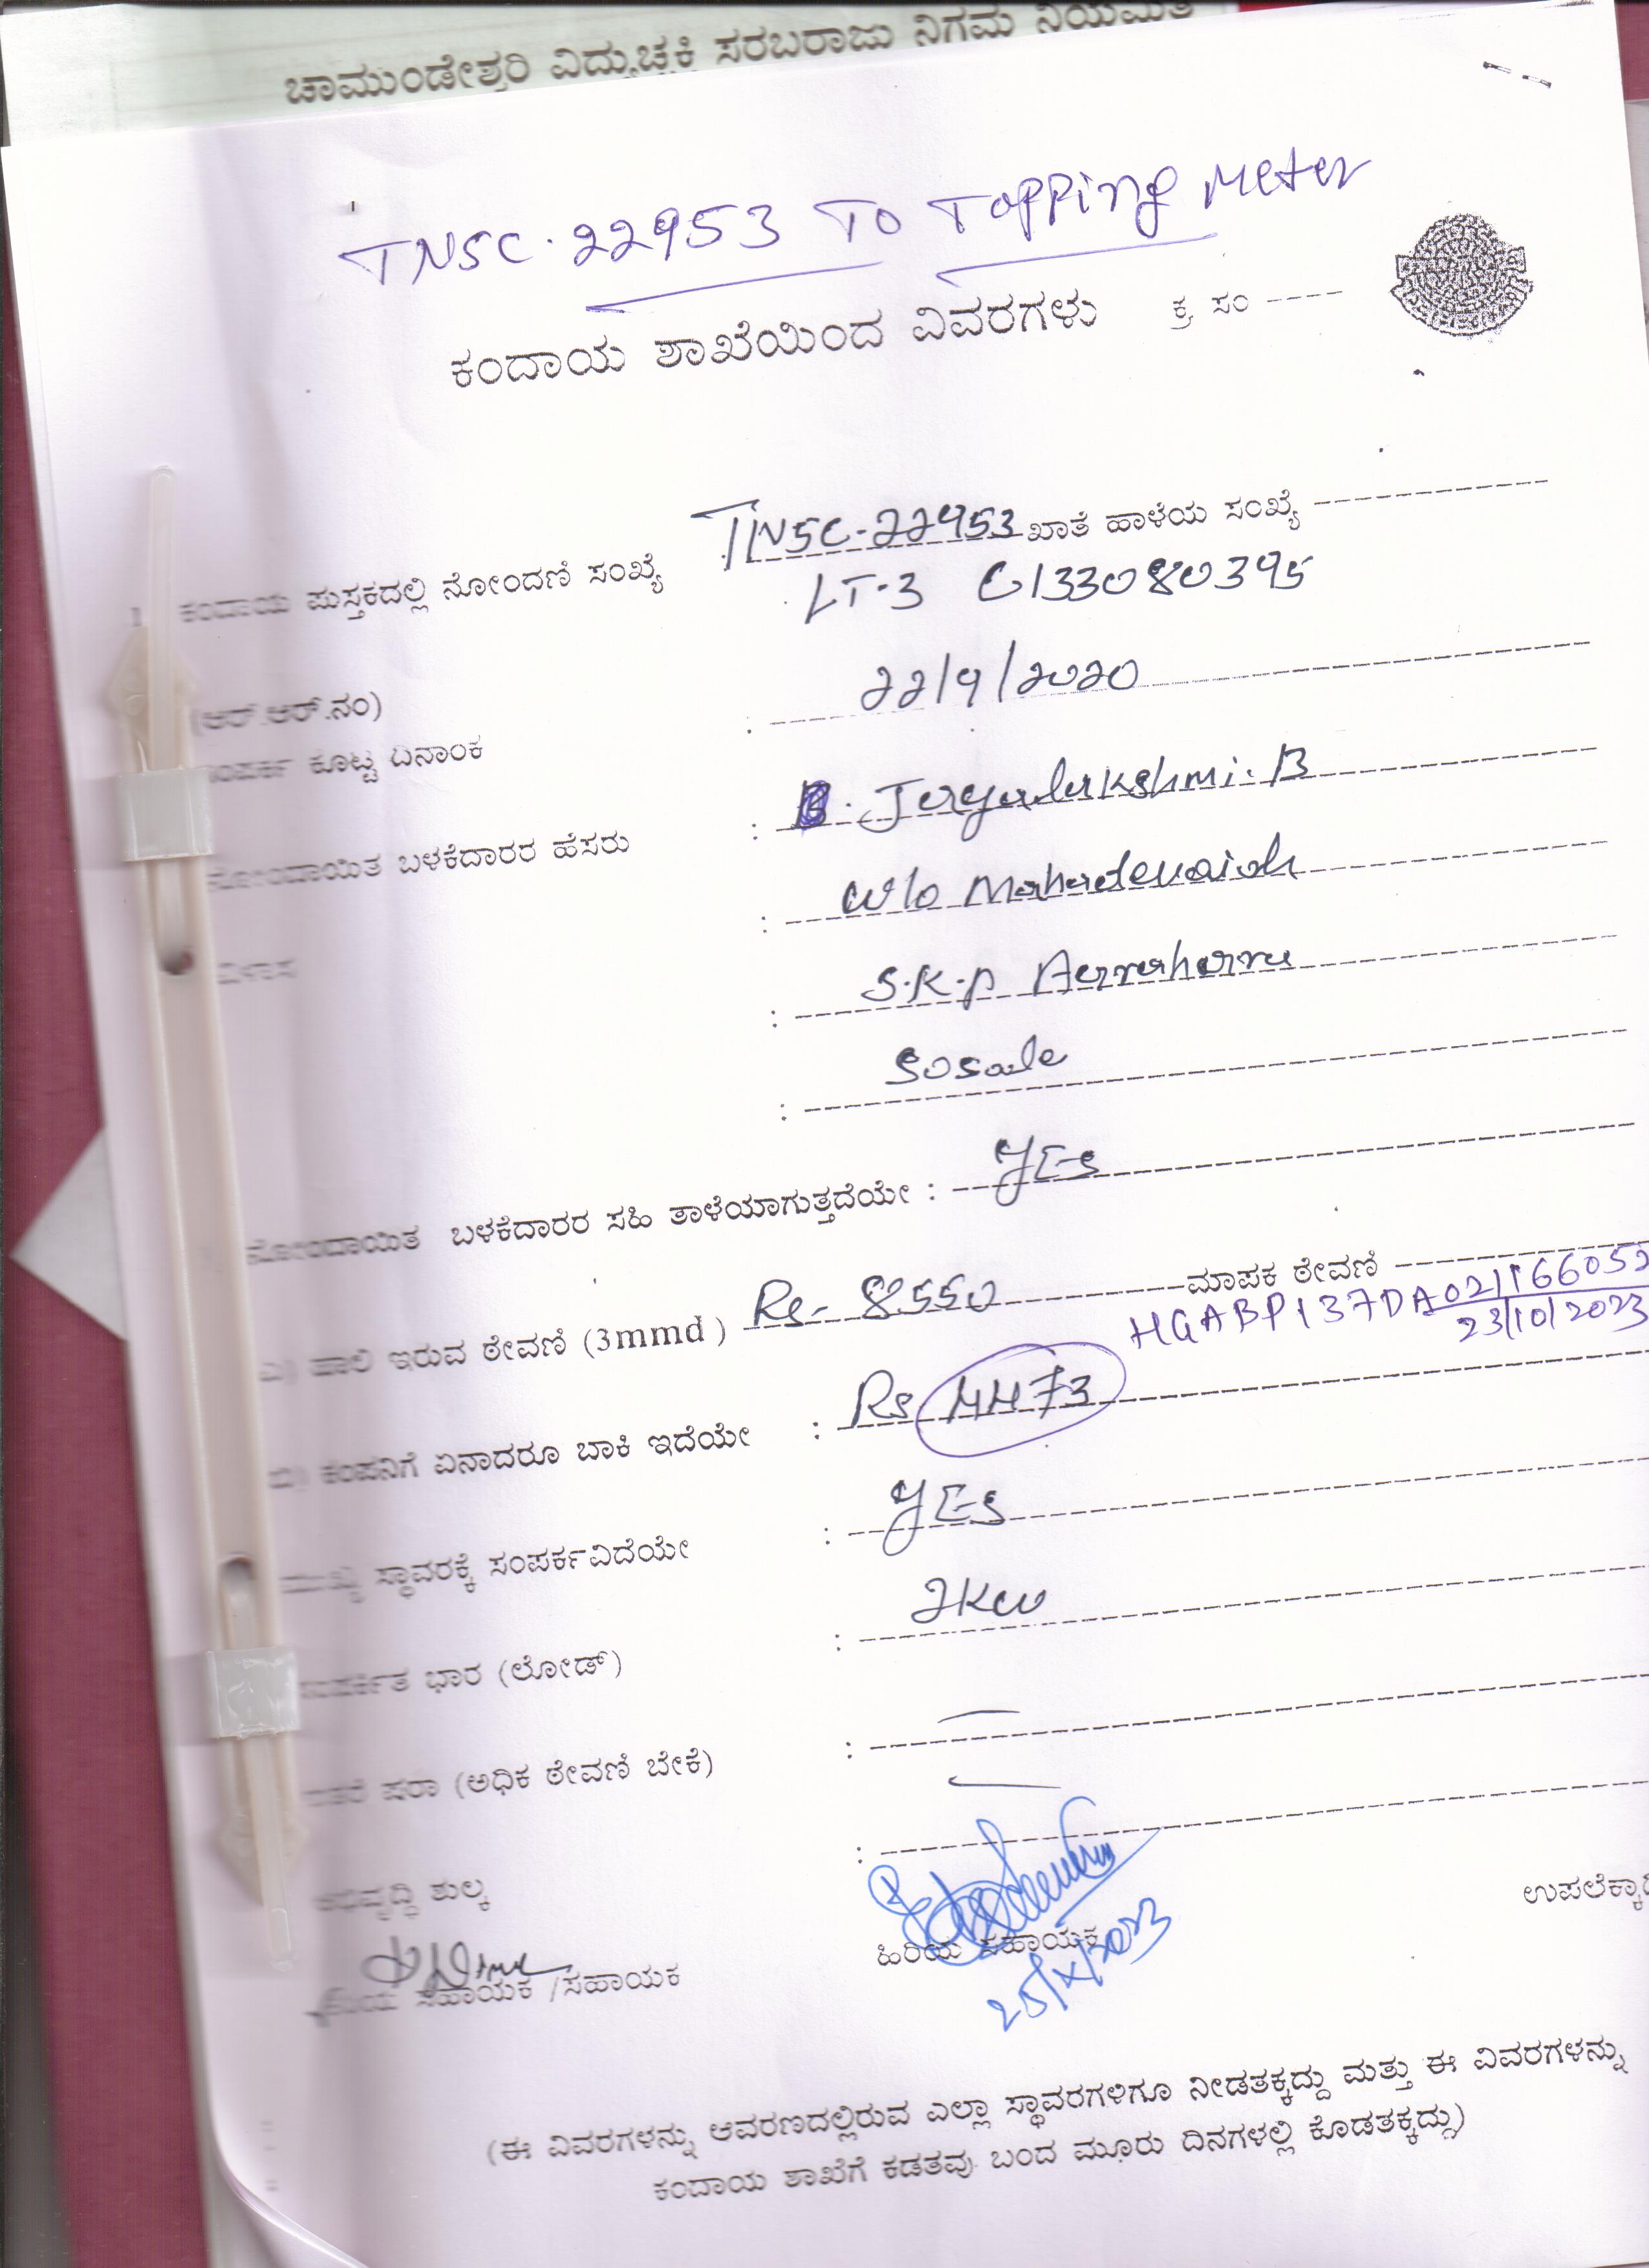 ಚಾಮುಂಡೇಶ್ವರಿ ವಿದ್ಯುಚ್ಛಕ್ತಿ ಸರಬರಾಜು ನಿಗಮ ನಿಯಮಿತ
TNSC.22953 TO Topping Meter
ಕಂದಾಯ ಶಾಖೆಯಿಂದ ವಿವರಗಳು ಕ್ರ ಸಂ ----
ಕಂದಾಯ ಪುಸ್ತಕದಲ್ಲಿ ನೋಂದಣಿ ಸಂಖ್ಯೆ TNSC-22953 ಖಾತೆ ಹಾಳೆಯ ಸಂಖ್ಯೆ
LT-3 6133080395
(ಆರ್.ಆರ್.ನಂ)
ಸಂಪರ್ಕ ಕೊಟ್ಟ ದಿನಾಂಕ : 22/9/2020
ನೋಂದಾಯಿತ ಬಳಕೆದಾರರ ಹೆಸರು : Jayalakshmi.B
ವಿಳಾಸ : W/o Mahadevaiah
: S.K.P Agrahara
: Sosale
ನೋಂದಾಯಿತ ಬಳಕೆದಾರರ ಸಹಿ ತಾಳೆಯಾಗುತ್ತದೆಯೇ : YES
ಎ) ಹಾಲಿ ಇರುವ ಠೇವಣಿ (3mmd) Rs- 8550 ಮಾಪಕ ಠೇವಣಿ
HGABP137DA02/166052
23/10/2023
ಬಿ) ಕಂಪನಿಗೆ ಏನಾದರೂ ಬಾಕಿ ಇದೆಯೇ : Rs 4473
ಮುಖ್ಯ ಸ್ಥಾವರಕ್ಕೆ ಸಂಪರ್ಕವಿದೆಯೇ : YES
ಸಂಪರ್ಕಿತ ಭಾರ (ಲೋಡ್) : 2KW
ಇತರೆ ಷರಾ (ಅಧಿಕ ಠೇವಣಿ ಬೇಕೆ) : —
ಅಭಿವೃದ್ಧಿ ಶುಲ್ಕ : —
ಕಿರಿಯ ಸಹಾಯಕ /ಸಹಾಯಕ ಹಿರಿಯ ಸಹಾಯಕ
25/X/2023
(ಈ ವಿವರಗಳನ್ನು ಆವರಣದಲ್ಲಿರುವ ಎಲ್ಲಾ ಸ್ಥಾವರಗಳಿಗೂ ನೀಡತಕ್ಕದ್ದು ಮತ್ತು ಈ ವಿವರಗಳನ್ನು
ಕಂದಾಯ ಶಾಖೆಗೆ ಕಡತವು ಬಂದ ಮೂರು ದಿನಗಳಲ್ಲಿ ಕೊಡತಕ್ಕದ್ದು)